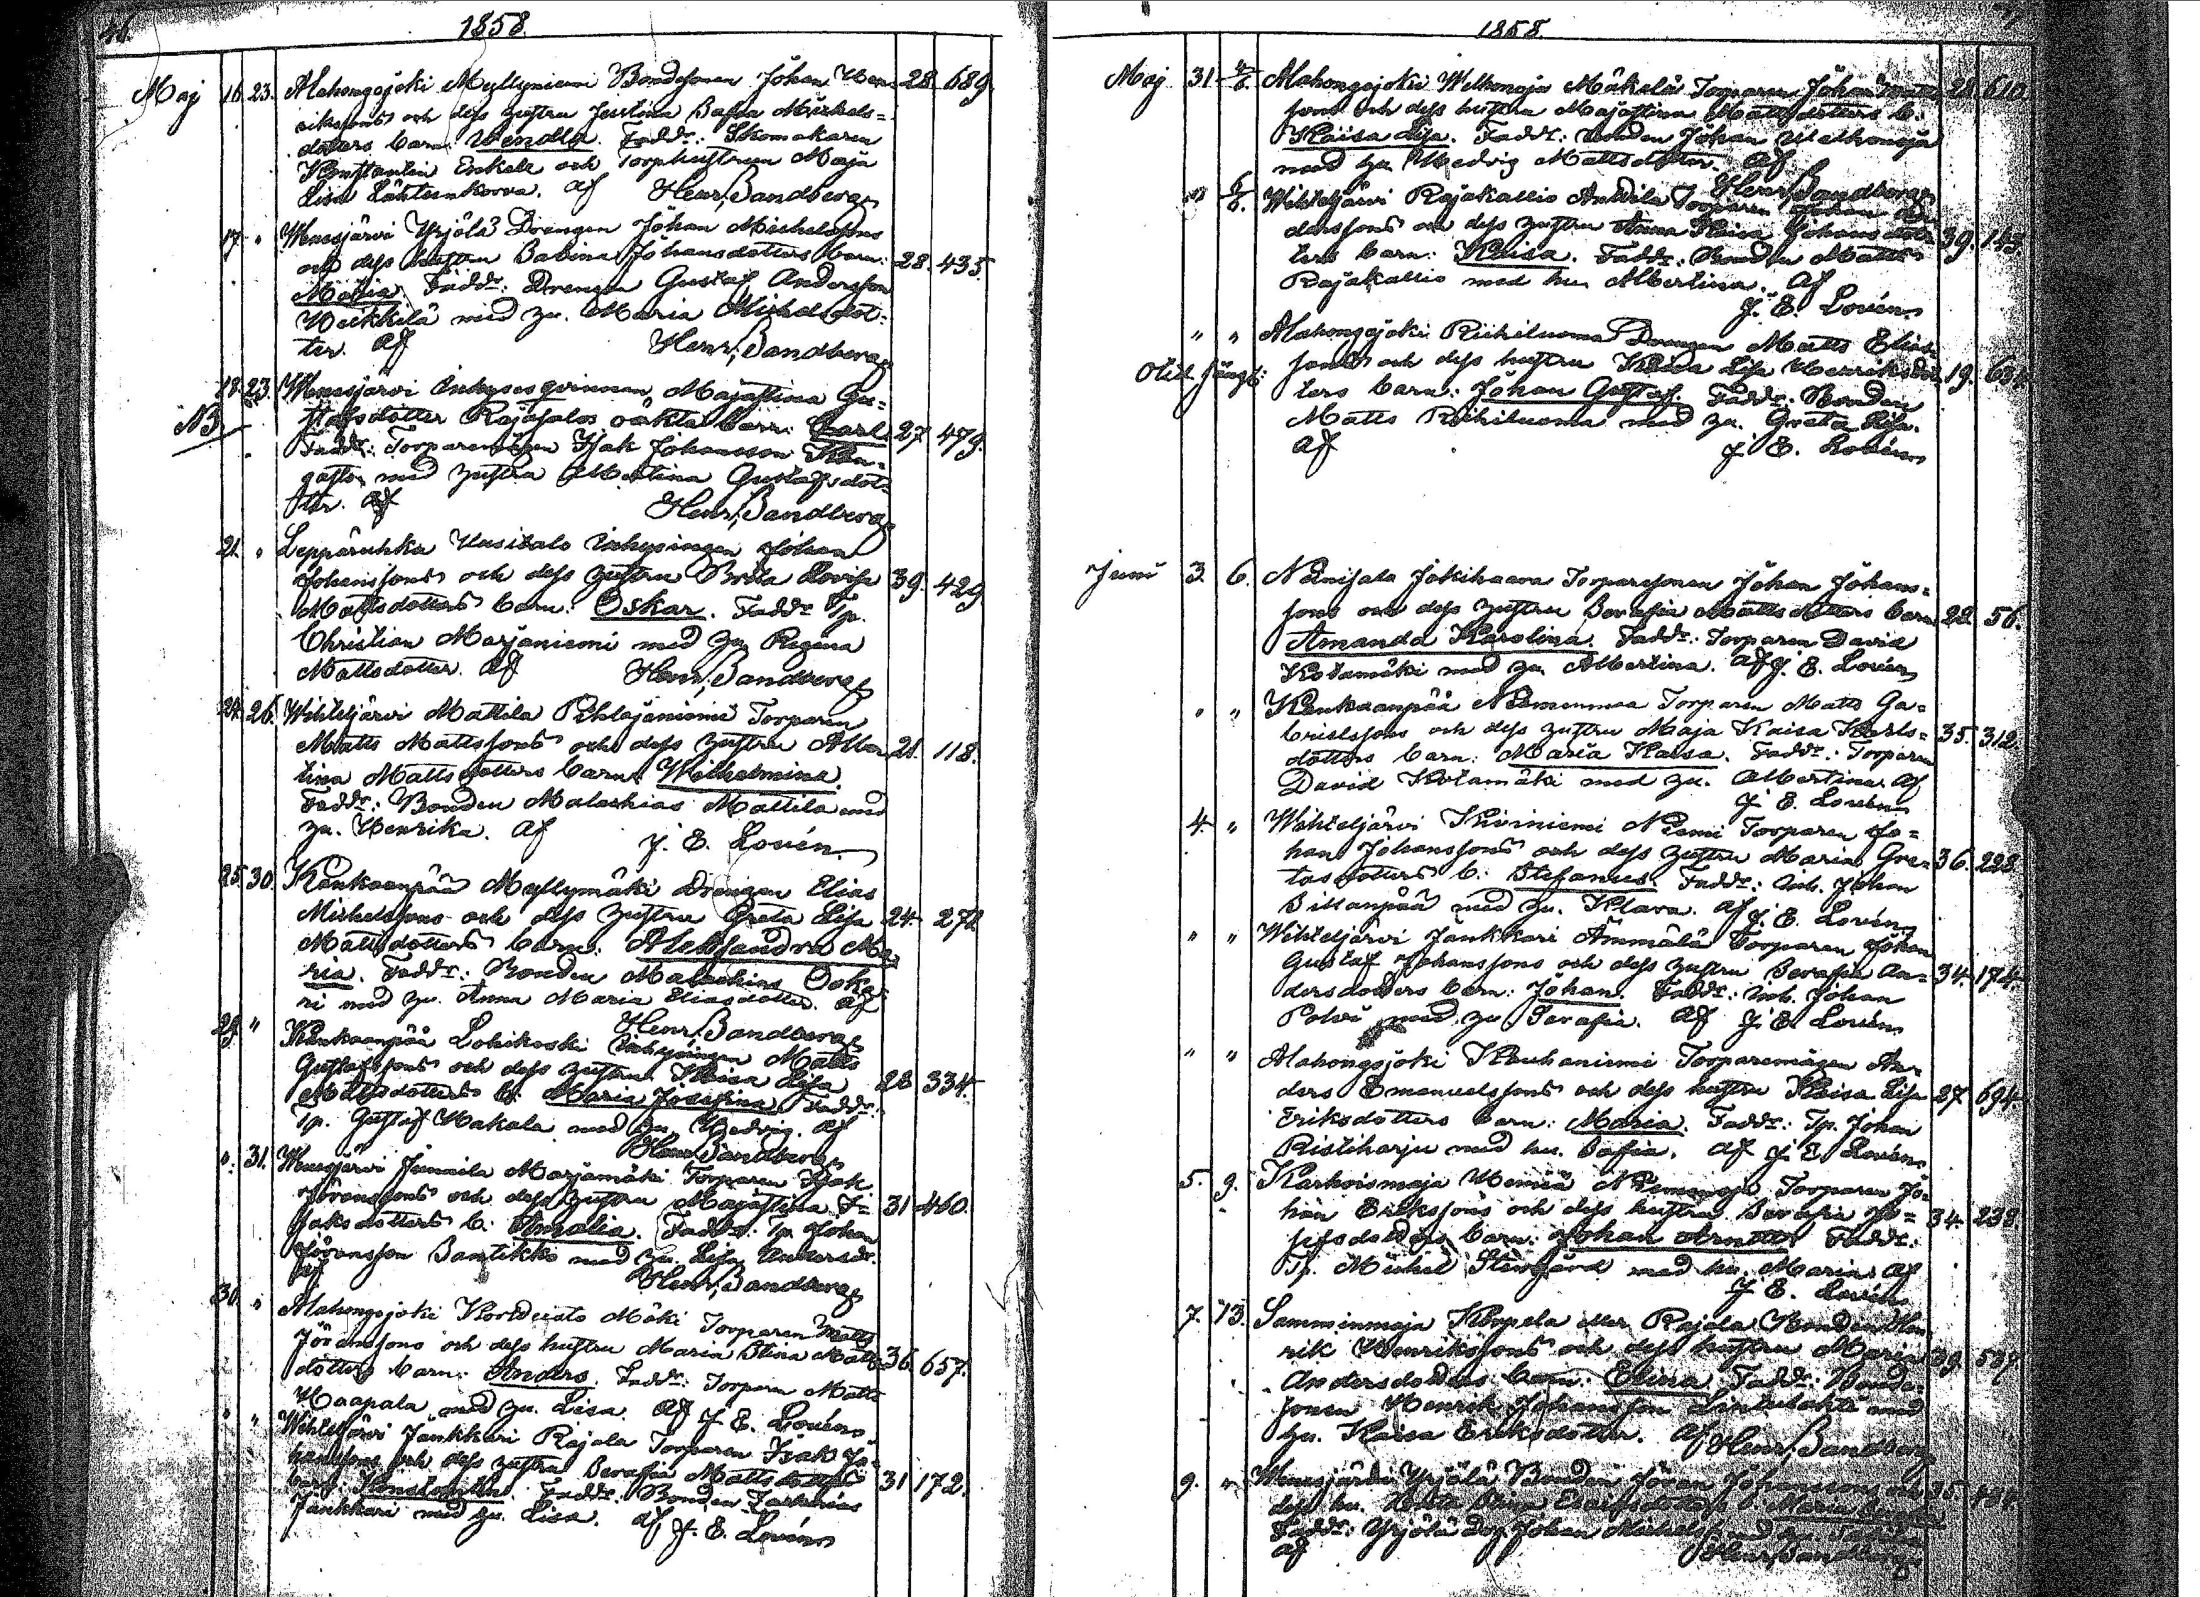 46.
1858.
Maj 16. 23. Alahongojoki Myllyniemi Bondesonen Johan Hen- 28. 689.
rikssons och dess hustru Justina Michels=
dotters barn: Wendla. Faddr: Skomakaren
Konstantin Enkele och Torphustrun Maja
Lisa Lähteenkorva. Af Henr. Sandberg
17. " Wenesjärvi Yrjölä Drengen Johan Michelssons
och dess hustru Sabina Johansdotters barn: 28. 435.
Maria. Faddr: Drengen Gustaf Andersson
Heikkilä med hu. Maria Michelsdot=
ter. Af Henr. Sandberg
18. 23. Wenesjärvi Inhysesqvinnan Majastina Gu=
NB stafsdotter Rajasalos oäkta barn: Carl. 27. 479.
Faddr: Torparemågen Isak Johansson Kan=
gasto med hustru Albertina Gustafsdot=
ter. Af Henr. Sandberg
21. " Leppäruhka Uusitalo Inhysingen Johan
Johanssons och dess hustru Brita Lovisa 39. 429.
Mattsdotters barn: Oskar. Faddr Tp.
Christian Marjaniemi med hu. Regina
Mattsdotter. Af Henr. Sandberg
24. 26. Wihteljärvi Mattila Pihlajaniemi Torparen
Matts Mattssons och dess hustru Alber 21. 118.
tina Mattsdotters barn: Wilhelmina.
Faddr: Bonden Malachias Mattila med
hu. Henrika. Af J. E. Lovén.
25. 30. Kankaanpää Myllymäki Drängen Elias
Michelssons och dess hustru Greta Lisa 24. 272
Mattsdotters barn: Aleksandra Ma
ria. Faddr: Bonden Malachias Oska
ri med hu. Anna Maria Eliasdotter. Af
Henr. Sandberg
29. " Kankaanpää Lohikoski Inhysingen Matts
Gustafssons och dess hustru Kaisa Lisa 28 334.
Mattsdotters b: Maria Josefina. Faddr:
Tp. Gustaf Hakala med hu. Hedvig. Af
Henr. Sandberg
". 31. Wenesjärvi Junnila Marjamäki Torparen Isak
Göranssons och dess hustru Majastina I= 31. 460.
saksdotters b: Amalia. Faddr: Tp. Johan
Göransson Santikko med hu. Lisa Andersdr.
Af Henr. Sandberg
30. " Alahongojoki Korkeaoto Mäki Torparen Matts
Göranssons och dess hustru Maria Stina Matts 36. 657.
dotters barn: Anders. Faddr: Torparen Matts
Haapala med hu. Lisa. Af J. E. Lovén
" " Wihteljärvi Jankkari Rajala Torparen Isak Jo-
hanssons och dess hustru Serafia Mattsdotters 31 172.
barn: Konstantin. Faddr: Bonden Zackarias
Jankkari med hu. Lisa. Af J. E. Lovén
1858.
Maj 31. 4/6. Alahongojoki Welhonoja Mäkelä Torparen Johan Matts 28. 610.
sons och dess hustru Majastina Mattsdotters b.
Kaisa Lisa. Faddr: Bonden Johan Welhonoja
med hu. Hedvig Mattsdotter. Af
Henr. Sandberg
" 6/6. Wihteljärvi Rajakallio Anttila Torparen Johan An
derssons och dess hustru Anna Kaisa Johansdot= 39. 143.
ters barn: Kaisa. Faddr: Bonden Matts
Rajakallio med hu. Albertina. Af
J. E. Lovén
" " Alahongojoki Riihiluoma Drengen Matts Elias
sons och dess hustru Kaisa Lisa Henriksdot 19. 634.
ters barn: Johan Gustaf. Faddr: Bonden
Matts Riihiluoma med hu. Greta Lisa.
Af J. E. Lovén
Juni 3. 6. Niinisalo Jokihaara Torparesonen Johan Johans=
sons och dess hustru Serafia Mattsdotters barn 28. 56.
Amanda Karolina. Faddr: Torparen David
Kotamäki med hu. Albertina. Af J. E. Lovén
" " Kankaanpää Niemenmaa Torparen Matts Ga=
brielssons och dess hustru Maja Kaisa Karls= 35. 312.
dotters barn: Maria Kaisa. Faddr: Torparen
David Kotamäki med hu. Albertina. Af
J. E. Lovén
4. " Wihteljärvi Kiviniemi Niemi Torparen Jo=
han Johanssons och dess hustru Maria Gre= 36. 228.
tasdotters b: Stefanus. Faddr: Inh. Johan
Sillanpää med hu. Klara. Af J. E. Lovén
" " Wihteljärvi Jankkari Ämmälä Torparen Johan
Gustaf Johanssons och dess hustru Serafia An= 34. 174.
dersdotters barn: Johan. Faddr: Inh. Johan
Polvi med hu Serafia. Af J. E. Lovén
" " Alahongojoki Kauhaniemi Torparemågen An=
ders Emanuelssons och dess hustru Kaisa Lisa 27. 694.
Eriksdotters barn: Maria. Faddr: Tp. Johan
Ristiharju med hu. Sofia. Af J. E. Lovén
5. 9. Karhoismaja Heiniä Niemenoja Torparen Jo=
han Erikssons och dess hustru Serafia Jo= 34. 238.
sefsdotters barn: Johan Arvid. Faddr:
Tp. Michel Stengård med hu. Maria. Af
J. E. Lovén
7. 13. Samminmaja Korpela eller Rajala Bonden Hen
rik Henrikssons och dess hustru Maria 39. 539.
Andersdotters barn: Elina. Faddr: Bonde=
sonen Henrik Johansson Lintulahti med
hu. Kaisa Eriksdotter. Af Henr. Sandberg
9. " Wenesjärvi Yrjölä Bonden Göran Johanssons och 35.
dess hu. Esaiasdotters b:
Faddr: Yrjölä Dr. Johan Michelss. med hu.
Af Henr. Sandberg